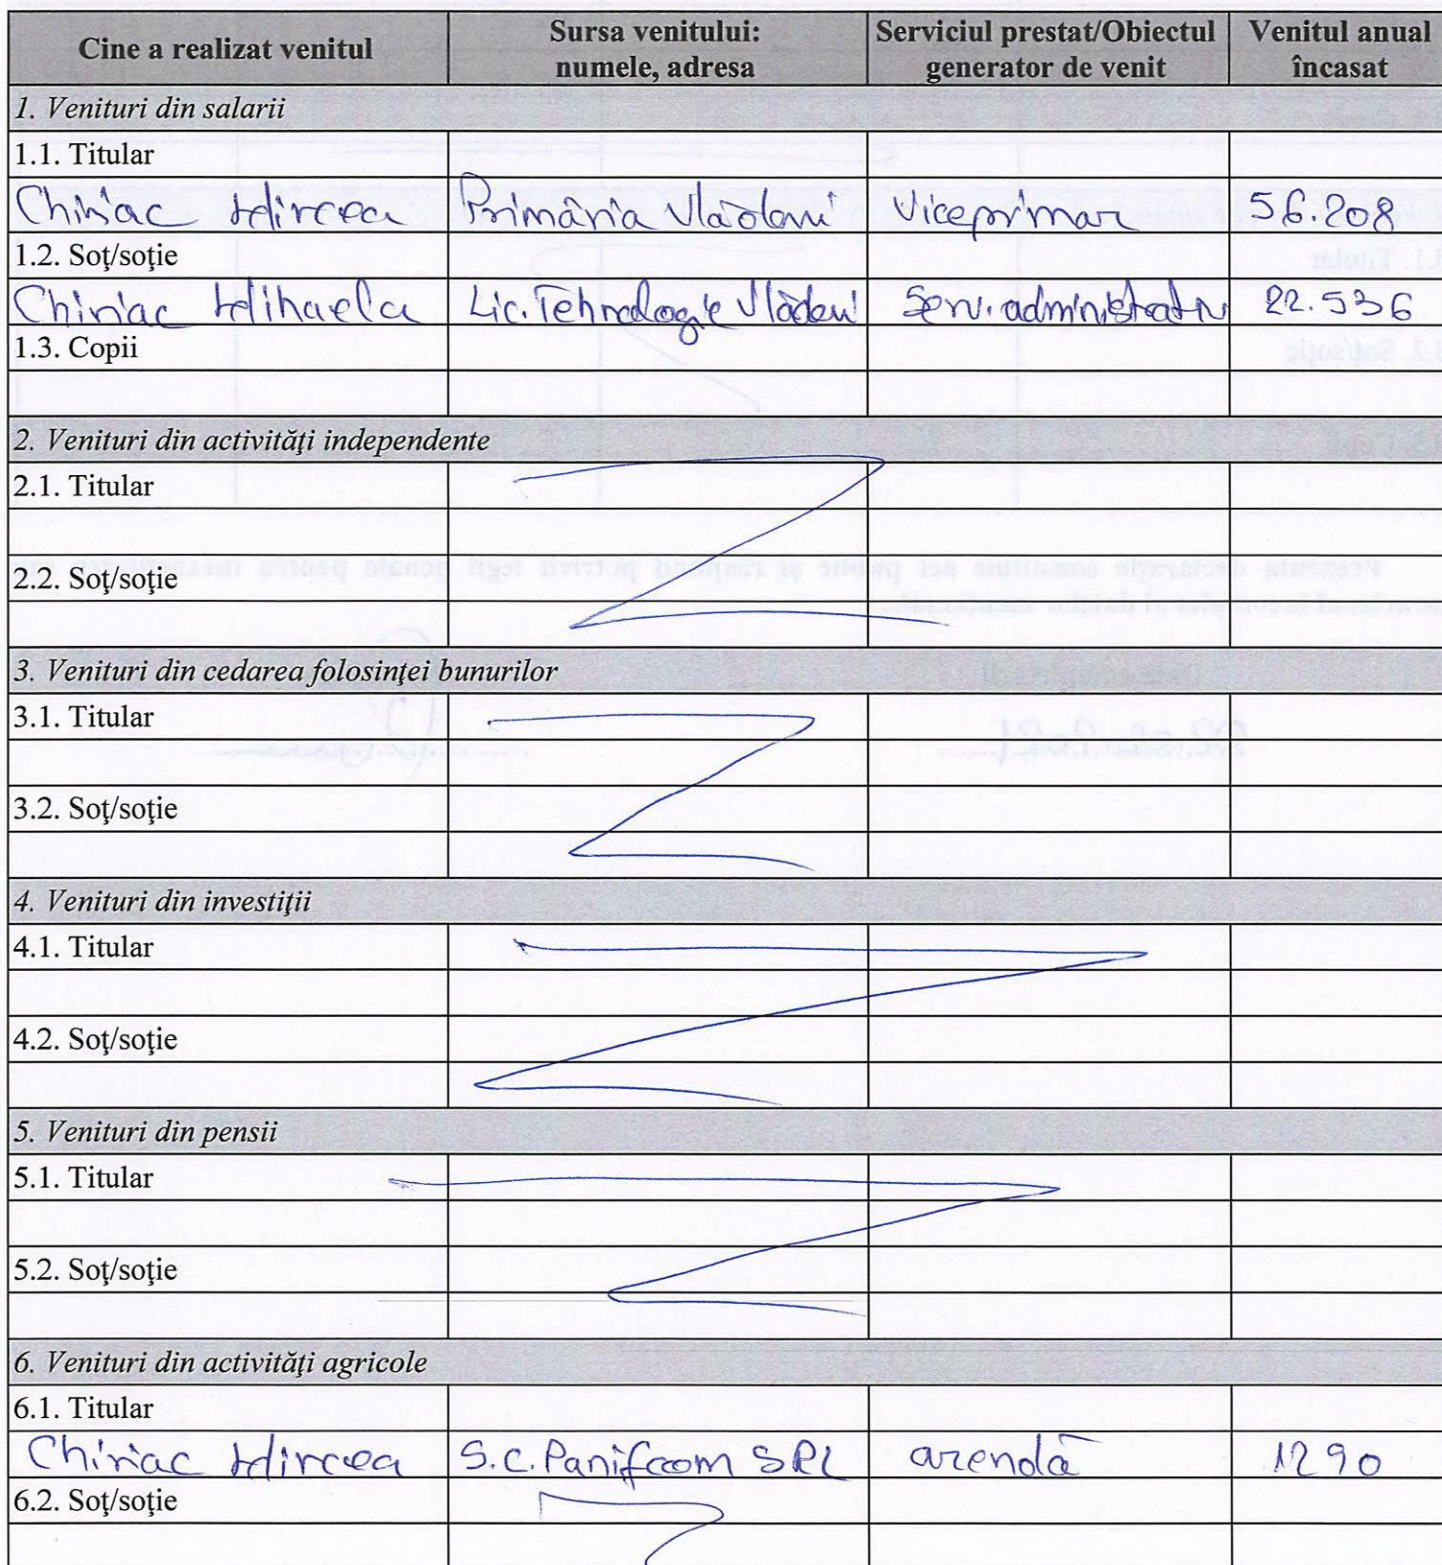 Cine a realizat venitul
Sursa venitului:
numele, adresa
Serviciul prestat/Obiectul
generator de venit
Venitul anual
încasat
1. Venituri din salarii
1.1. Titular
Chiriac Mircea Primăria Vlădeni Viceprimar 56.208
1.2. Soţ/soţie
Chiriac Mihaela Lic. Tehnologic Vlădeni Serv. administrativ 22.536
1.3. Copii
2. Venituri din activităţi independente
2.1. Titular
2.2. Soţ/soţie
3. Venituri din cedarea folosinţei bunurilor
3.1. Titular
3.2. Soţ/soţie
4. Venituri din investiţii
4.1. Titular
4.2. Soţ/soţie
5. Venituri din pensii
5.1. Titular
5.2. Soţ/soţie
6. Venituri din activităţi agricole
6.1. Titular
Chiriac Mircea S.C. Panifcom SRL arendă 1290
6.2. Soţ/soţie